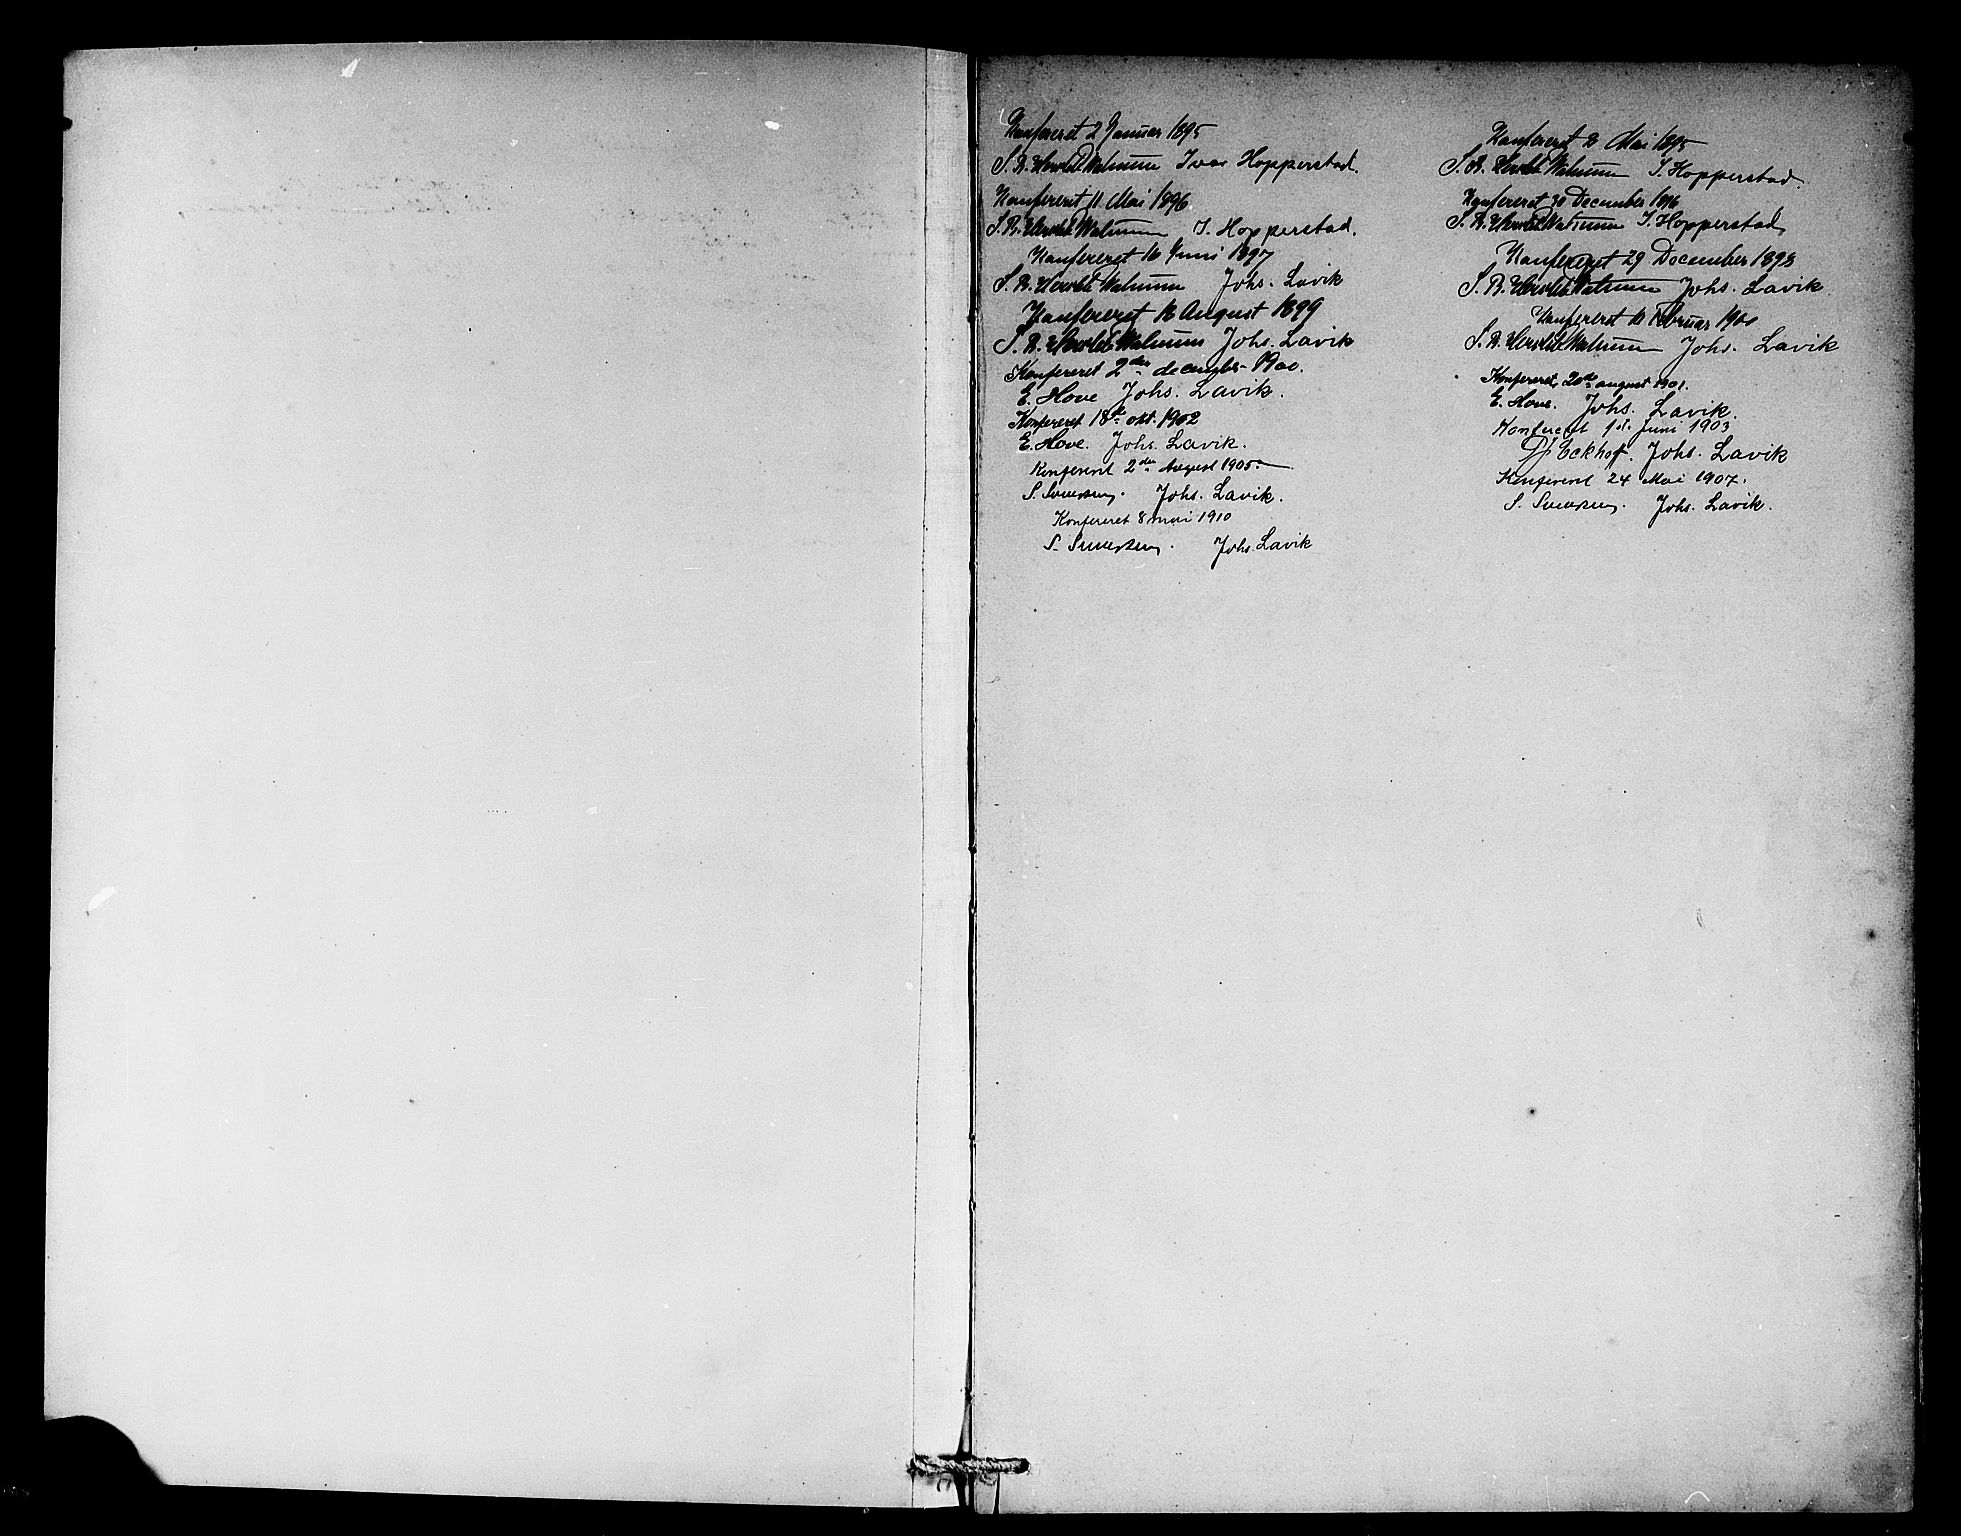 Konfereret 2 Januar 1895
S. B. Hersleb Walnum Ivar Hopperstad.
Konfereret 11 Mai 1896
S. B. Hersleb Walnum I. Hopperstad.
Konfereret 16 Juni 1897
S. B. Hersleb Walnum Johs. Lavik
Konfereret 12 August 1899
S. B. Hersleb Walnum Johs. Lavik
Konfereret 2den december 1900.
E. Hove Johs. Lavik.
Konfereret 18de okt. 1902
E. Hove. Johs. Lavik.
Konfereret 2den August 1905.
S. Johs. Lavik.
Konfereret 8 mai 1910
S. Johs. Lavik
Konfereret Mai 1895
S. B. Hersleb Walnum I. Hopperstad.
Konfereret 30 December 1896
S. B. Hersleb Walnum I. Hopperstad,
Konfereret 29 December 1898
S. B. Hersleb Walnum Johs. Lavik
Konfereret Februar 1900
S. B. Hersleb Walnum Johs. Lavik
Konfereret, 20de august 1901.
E. Hove. Johs. Lavik.
Konfereret 1st. Juni 1903
Eckhof. Johs. Lavik
Konfereret 24 Mai 1907.
S. Johs. Lavik.